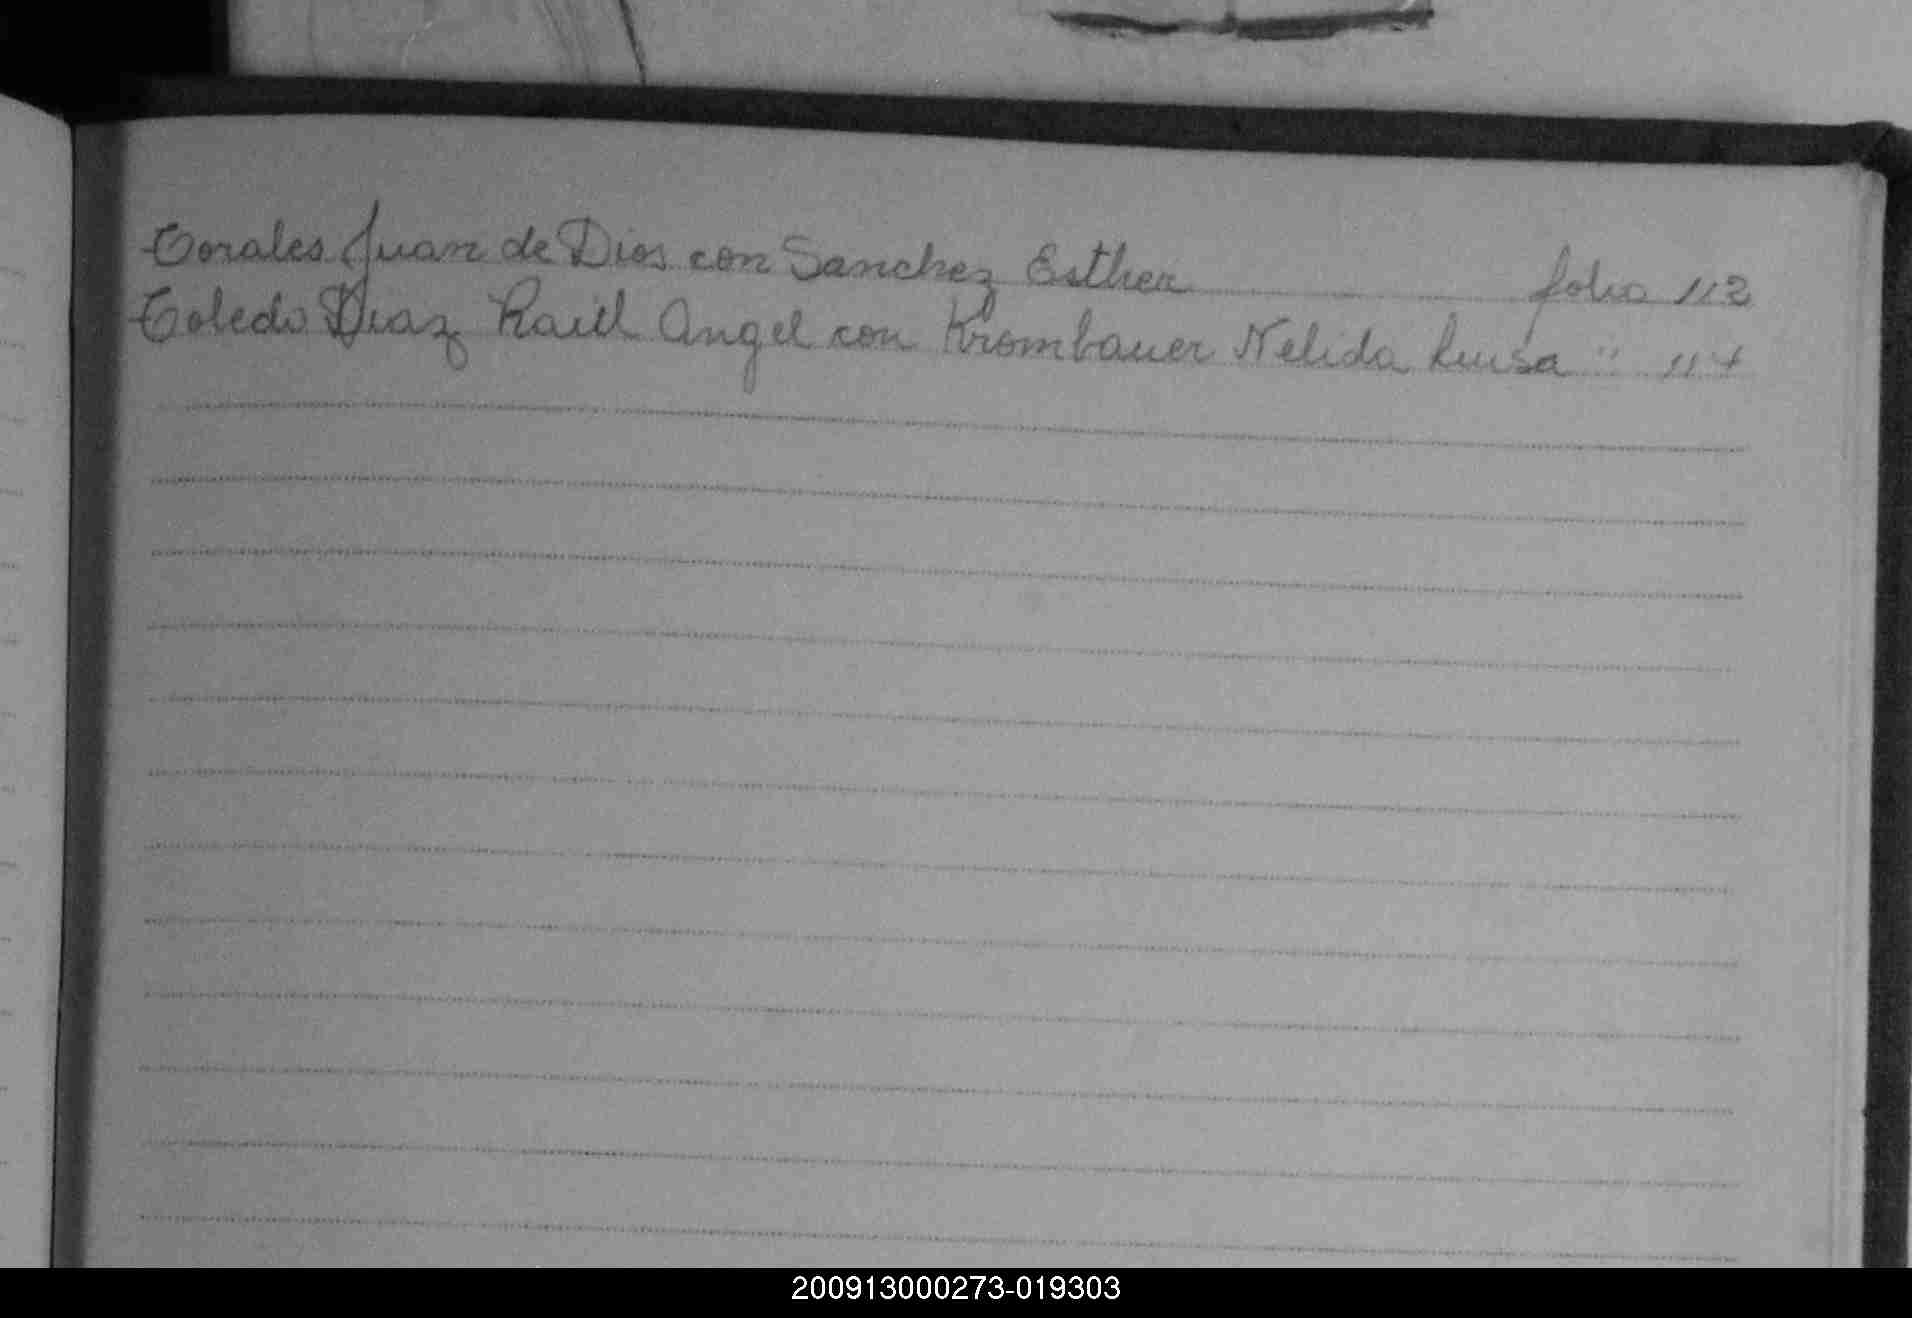 Torales Juan de Dios con Sanchez Esther folio 112
Toledo Diaz Raúl Angel con Krombauer Nelida Luisa " 117
200913000273-019303